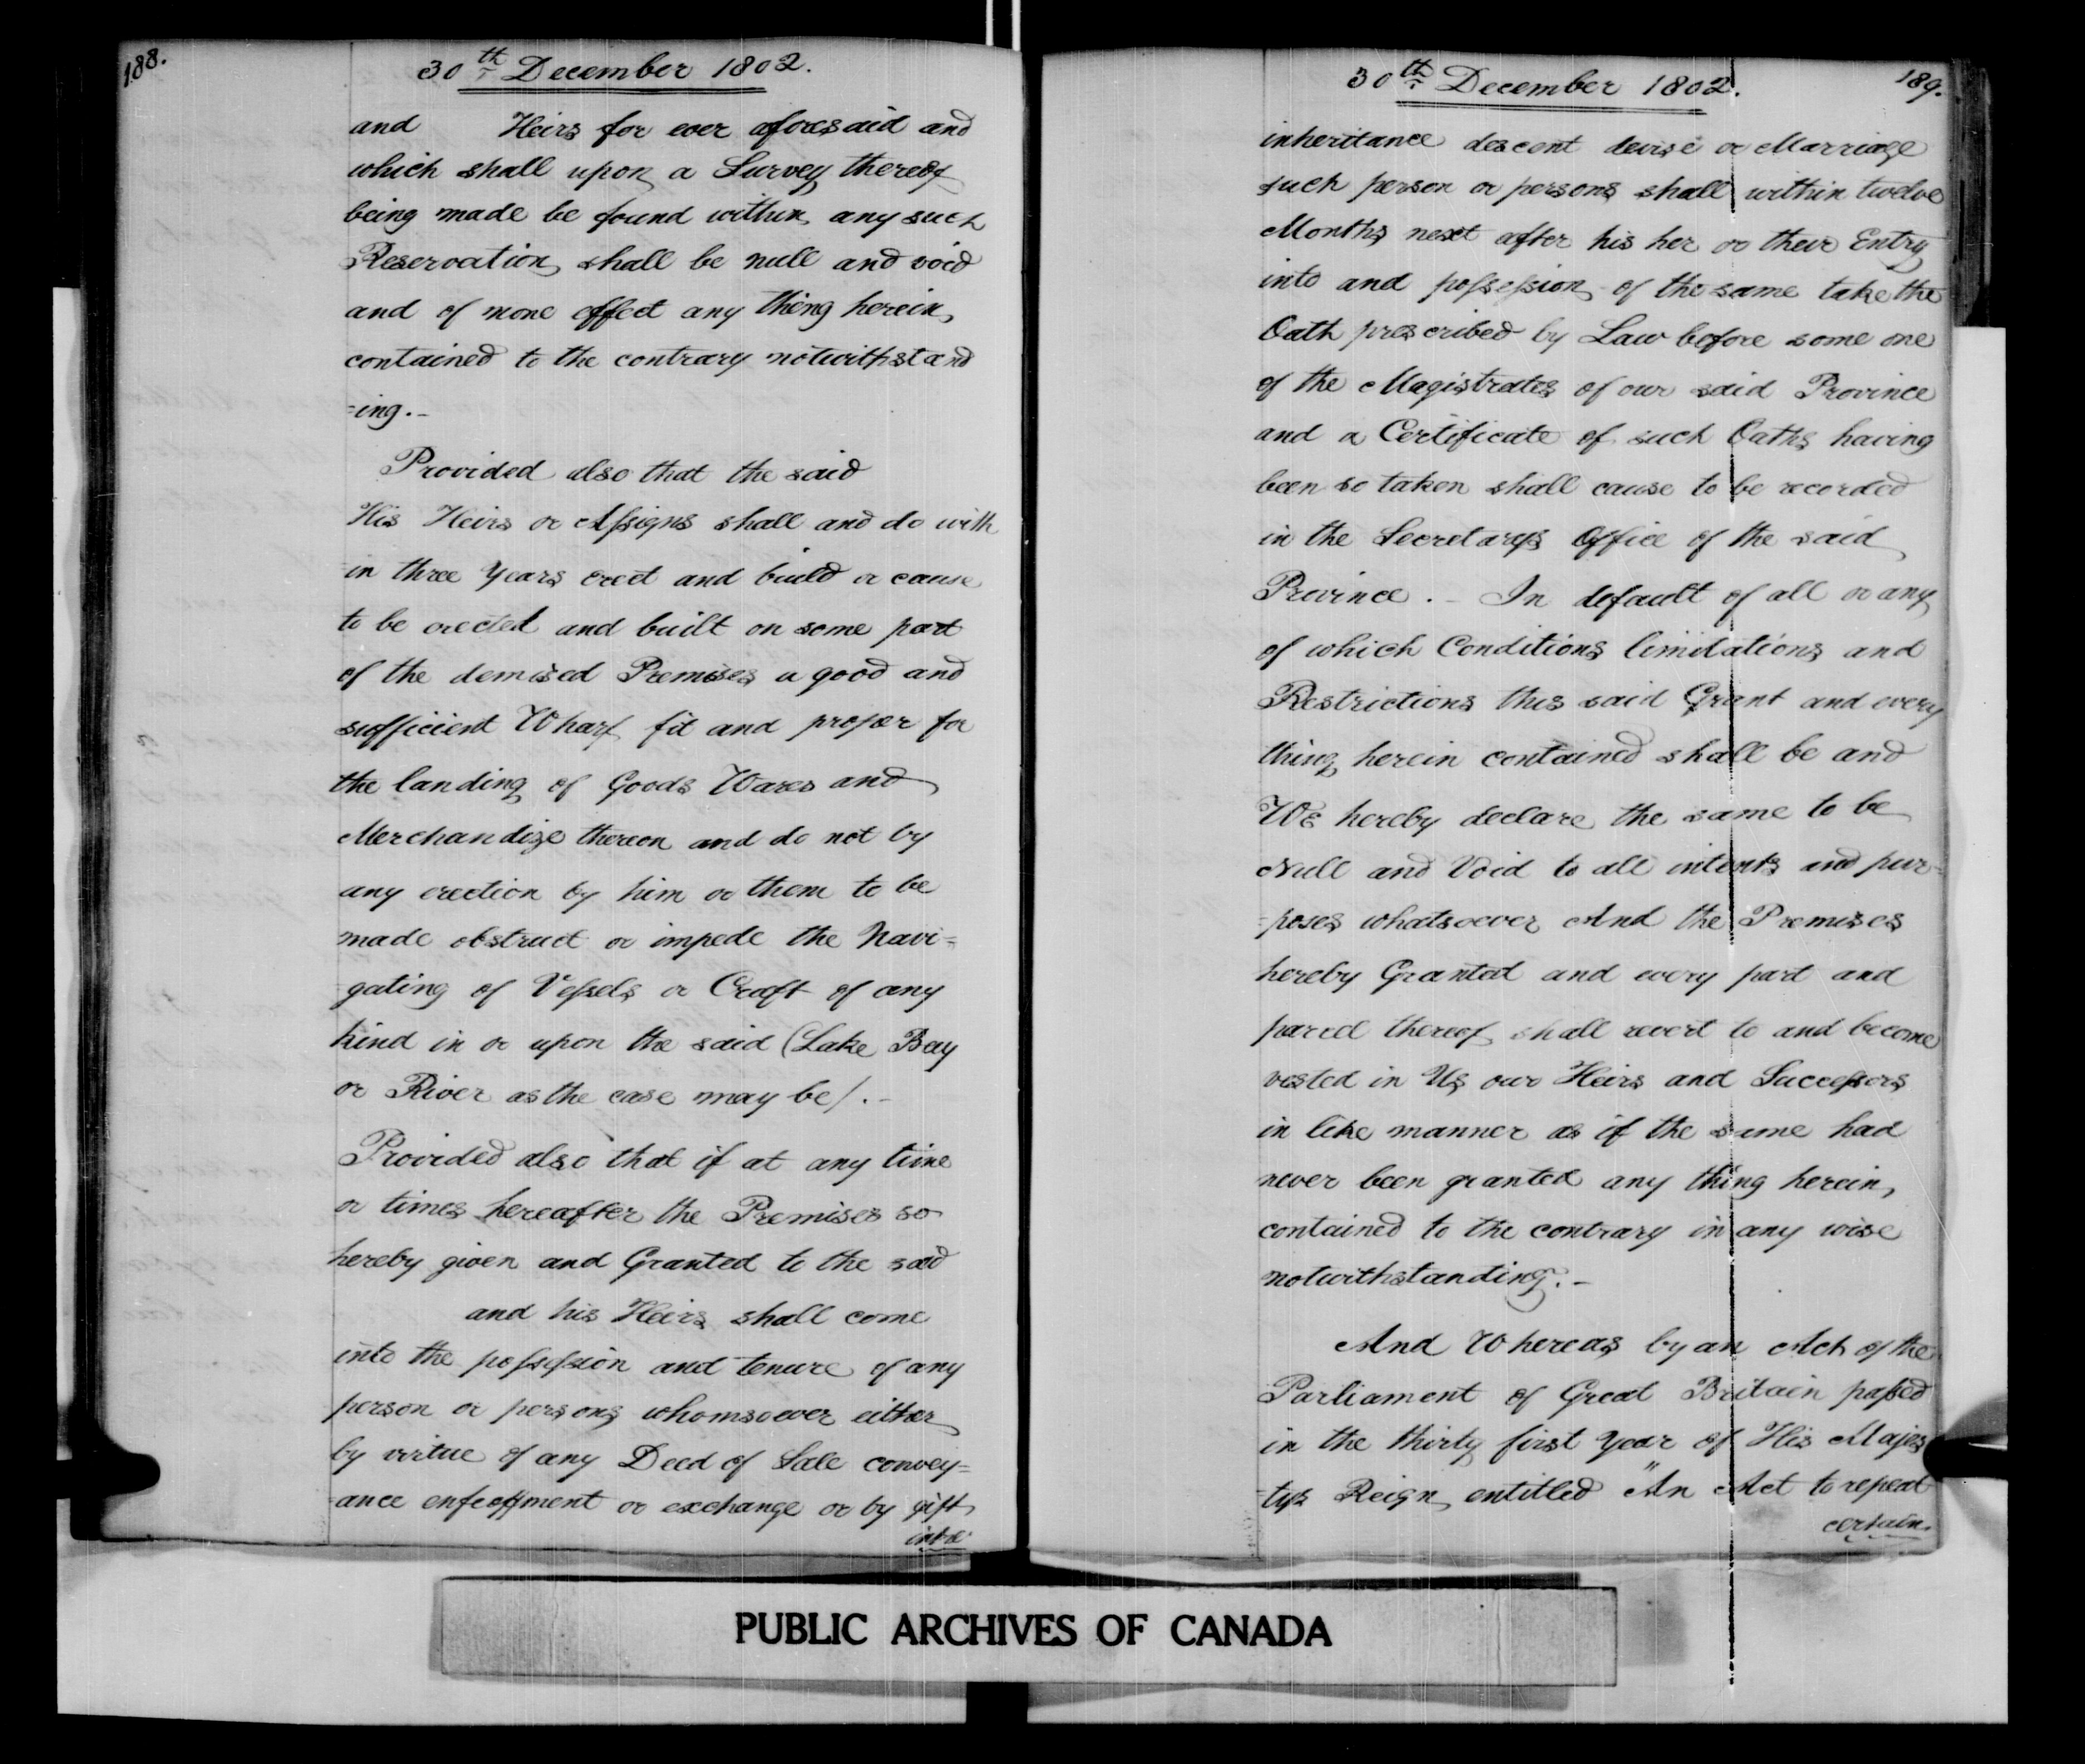 188.
30th December 1802.
and Heirs for ever aforesaid and
which shall upon a Survey thereof
being made be found within any such
Reservation shall be null and void
and of none effect any thing herein
contained to the contrary notwithstand
=ing.-
Provided also that the said
His Heirs or Assigns shall and do with
=in three Years erect and build or cause
to be erected and built on some part
of the demised Premises a good and
sufficient Wharf fit and proper for
the landing of Goods Wares and
Merchandize thereon and do not by
any erection by him or them to be
made obstruct or impede the Navi=
gating of Vessels or Craft of any
kind in or upon the said (Lake Bay
or River as the case may be/.-
Provided also that if at any time
or times hereafter the Premises so
hereby given and Granted to the said
and his Heirs shall come
into the possession and tenure of any
person or persons whomsoever either
by virtue of any Deed of Sale convey=
=ance enfeoffment or exchange or by gift
30th December 1802.
189.
inheritance descent devise or Marriage
such person or persons shall within twelve
Months next after his her or their Entry
into and possession of the same take the
Oath prescribed by Law before some one
of the Magistrates of our said Province
and a Certificate of such Oaths having
been so taken shall cause to be recorded
in the Secretarys Office of the said
Province.- In default of all or any
of which Conditions limitations and
Restrictions this said Grant and every
thing herein contained shall be and
We hereby declare the same to be
Null and Void to all intents and pur=
=poses whatsoever And the Premises
hereby Granted and every part and
parcel thereof shall revert to and become
vested in Us our Heirs and Successors
in like manner as if the same had
never been granted any thing herein
contained to the contrary in any wise
notwithstanding.-
And Whereas by an Act of the
Parliament of Great Britain passed
in the thirty first Year of His Majes
=tys Reign entitled "An Act to repeal
certain
PUBLIC ARCHIVES OF CANADA